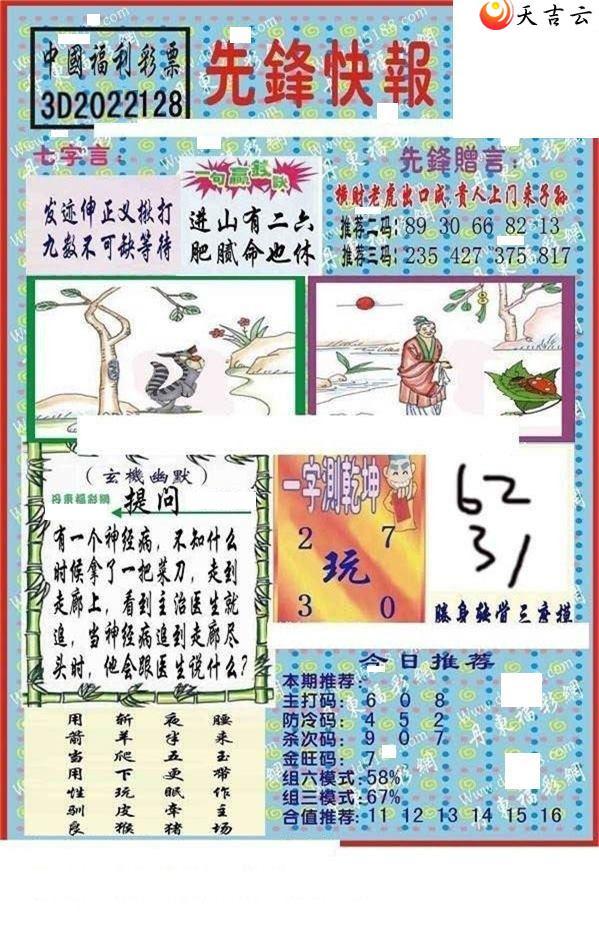 天吉云
中國福利彩票
3D2022128
先鋒快報
七字言：
发迹伸正义撇打
九数不可缺等待
一句赢钱诀
进山有二六
肥腻命也休
先鋒贈言：
横财老虎出口成，贵人上门来子孙
推荐二码：89 30 66 82 13
推荐三码：235 427 375 817
（玄機幽默）
丹東福彩網
提问
有一个神经病，不知什么
时候拿了一把菜刀，走到
走廊上，看到主治医生就
追，当神经病追到走廊尽
头时，他会跟医生说什么？
一字测乾坤
2 7
玩
3 0
62
31
今日推荐
本期推荐：
主打码：6 0 8
防冷码：4 5 2
杀次码：9 0 7
金旺码：7
组六模式：58%
组三模式：67%
合值推荐：11 12 13 14 15 16
用 斩 夜 腰
箭 羊 半 来
当 爬 五 玉
用 下 更 带
性 玩 眠 作
驯 皮 牵 主
良 猴 猪 场